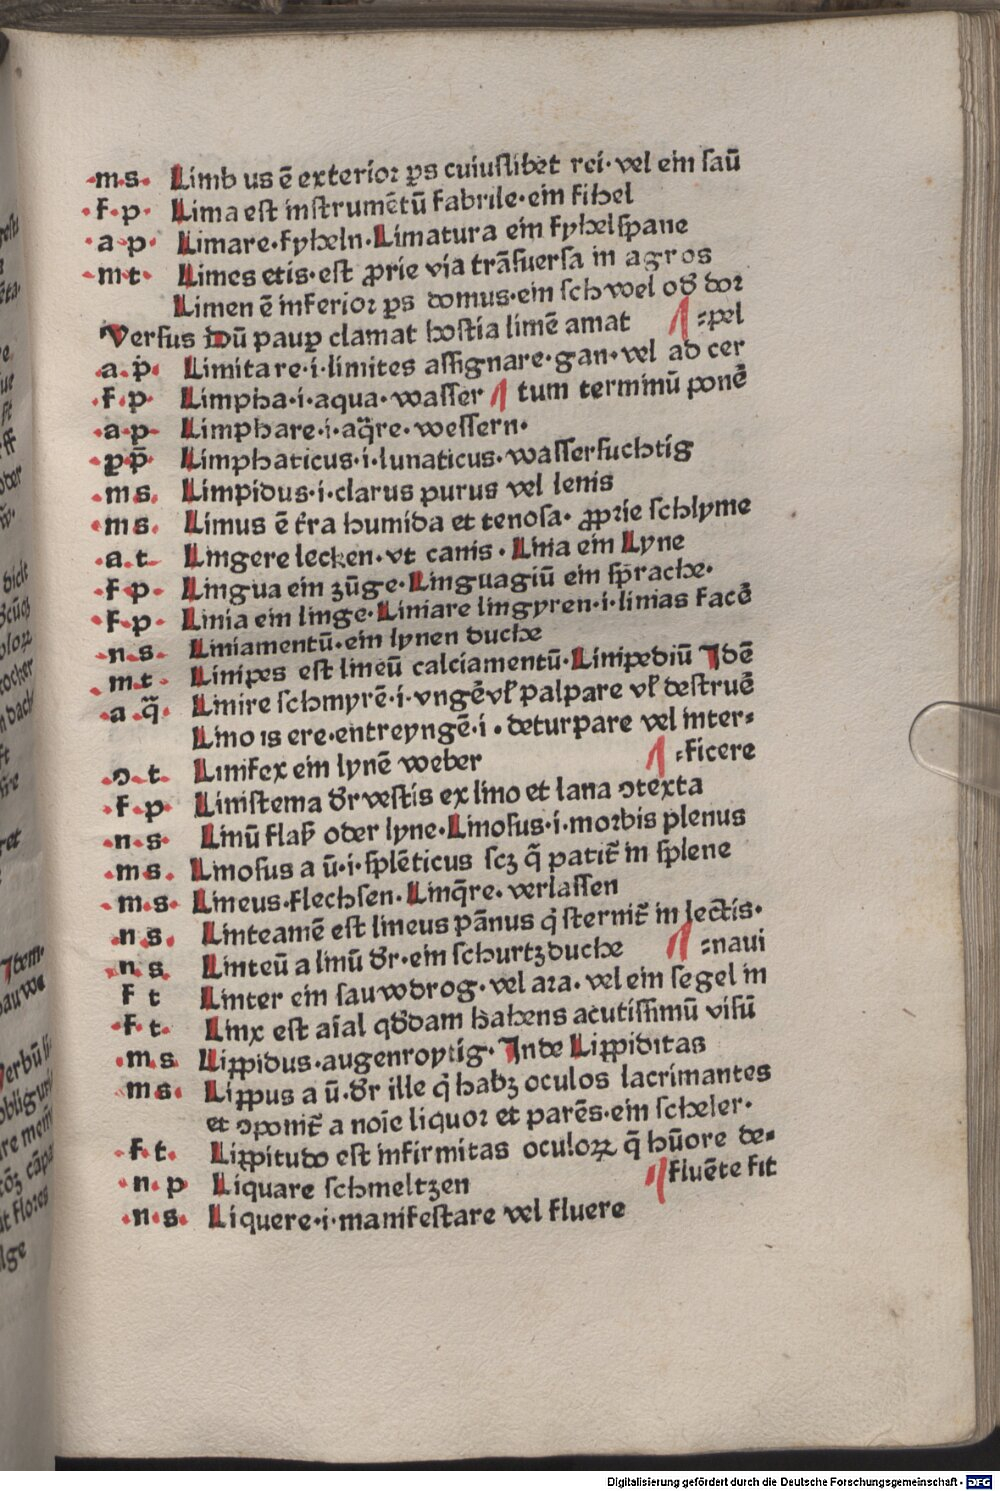 m.s. Limb us ē exterior ꝑs cuiuslibet rei· vel ein saū
f·p· Lima est instrumētū fabrile·ein fihel
a·p· Limare·fyheln·Limatura ein fyhelspane
m t· Limes etis·est ꝓrie via trāsuersa in agros
Limen ē inferior ꝑs domus·ein schwel ođ dor
Versus Dū pauꝑ clamat hostia limē amat ¶ ⸗pel
a.p· Limitare·i·limites assignare·gan·vel ad cer
f·p· Limpha·i·aqua·wasser ¶ tum terminū ponē
a·p· Limphare·i·aq̄re·wessern·
ꝑp̄· Limphaticus·i·lunaticus·wassersuchtig
m s. Limpidus·i·clarus purus vel lenis
m s. Limus ē t̄ra humida et tenosa· ꝓprie schlyme
a.t. Lingere lecken·vt canis·Linia ein Lyne
f·p· Lingua ein zūge·Linguagiū ein sprache·
f·p· Linia ein linge·Liniare lingyren·i·linias facē
n·s· Liniamentū·ein lynen duche
m t· Linipes est lineū calciamentū·Linipediū Jdē
a·q̄· Linire schmyrē·i·vngēvꝉ palpare vꝉ destruē
Lino is ere·entreyngē·i·deturpare vel inter⸗
ↄ·t. Linifex ein lynē weber ¶ ⸗ficere
f·p Linistema đr vestis ex lino et lana ↄtexta
n·s· Linū flaß oder lyne·Linosus·i·morbis plenus
m s. Linosus a ū·i·splēticus scꝫ q̄ patit̄ in splene
m·s· Lineus·flechsen·Linq̄re·verlassen
n s. Linteamē est lineus pānus q̇ sternit̄ in lectis·
n s. Linteū a linū đr·ein schurtzduche ¶ ⸗naui
f t Linter ein sauwdrog·vel ara·vel ein segel in
f·t. Linx est aīal qđdam habens acutissimū visū
m s Lippidus·augenroytig·Jnde Lippiditas
m s· Lippus a ū·đr ille q̇ habꝫ oculos lacrimantes
et ↄponit̄ a noīe liquor et parēs·ein scheler·
f·t. Lippitudo est infirmitas oculoꝝ q̄ hūore de⸗
n·p Liquare schmeltzen ¶ fluēte fit
n·s· Liquere·i·manifestare vel fluere
Digitalisierung gefördert durch die Deutsche Forschungsgemeinschaft - DFG